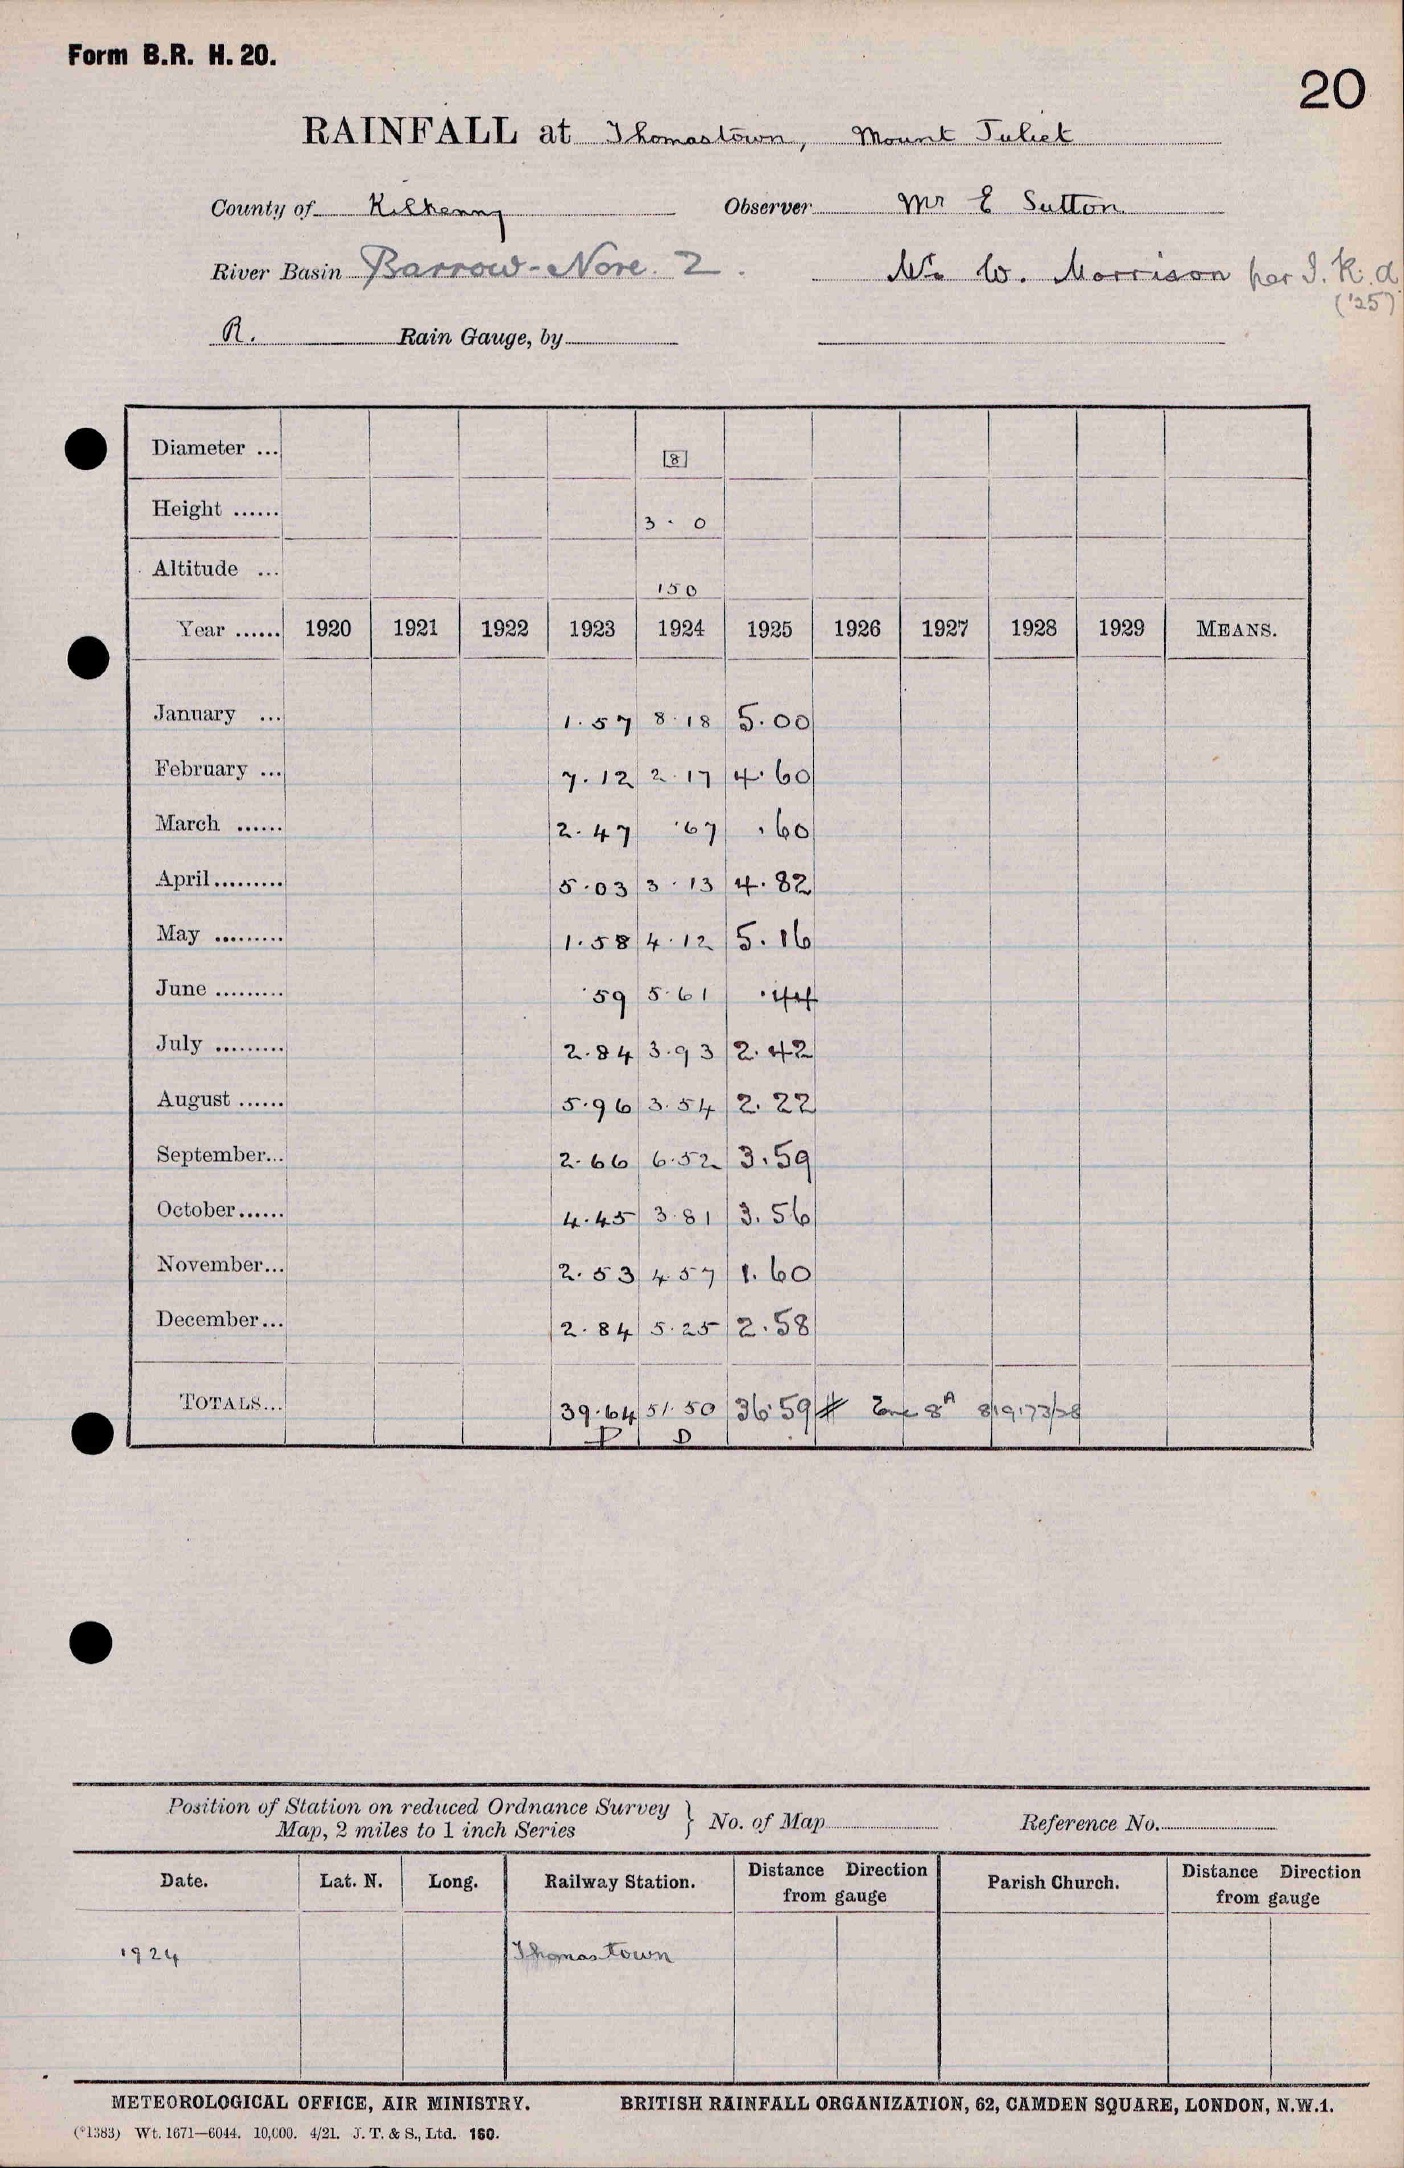 Form B.R. H. 20.
20
RAINFALL at Thomastown, Mount Juliet
County of Kilkenny Observer Mr E Sutton
River Basin Barrow-Nore. 2. Mr. W. Morrison per I. K. a
('25)
R. Rain Gauge, by
Diameter ... 8
Height ...... 3 · 0
Altitude ... 150
Year ...... 1920 1921 1922 1923 1924 1925 1926 1927 1928 1929 MEANS.
January ... 1.57 8.18 5.00
February ... 7.12 2.17 4.60
March ...... 2.47 .67 .60
April ......... 5.03 3.13 4.82
May ......... 1.58 4.12 5.16
June ......... .59 5.61 .44
July ......... 2.84 3.93 2.42
August ...... 5.96 3.54 2.22
September... 2.66 6.52 3.59
October...... 4.45 3.81 3.56
November... 2.53 4.57 1.60
December... 2.84 5.25 2.58
TOTALS... 39.64 51.50 36.59 # 8A 819.173/28
D D
Position of Station on reduced Ordnance Survey } No. of Map Reference No.
Map, 2 miles to 1 inch Series
Date. Lat. N. Long. Railway Station. Distance Direction from gauge Parish Church. Distance Direction from gauge
1924 Thomastown
METEOROLOGICAL OFFICE, AIR MINISTRY. BRITISH RAINFALL ORGANIZATION, 62, CAMDEN SQUARE, LONDON, N.W.1.
(*1383) Wt. 1671—6044. 10,000. 4/21. J. T. & S., Ltd. 160.